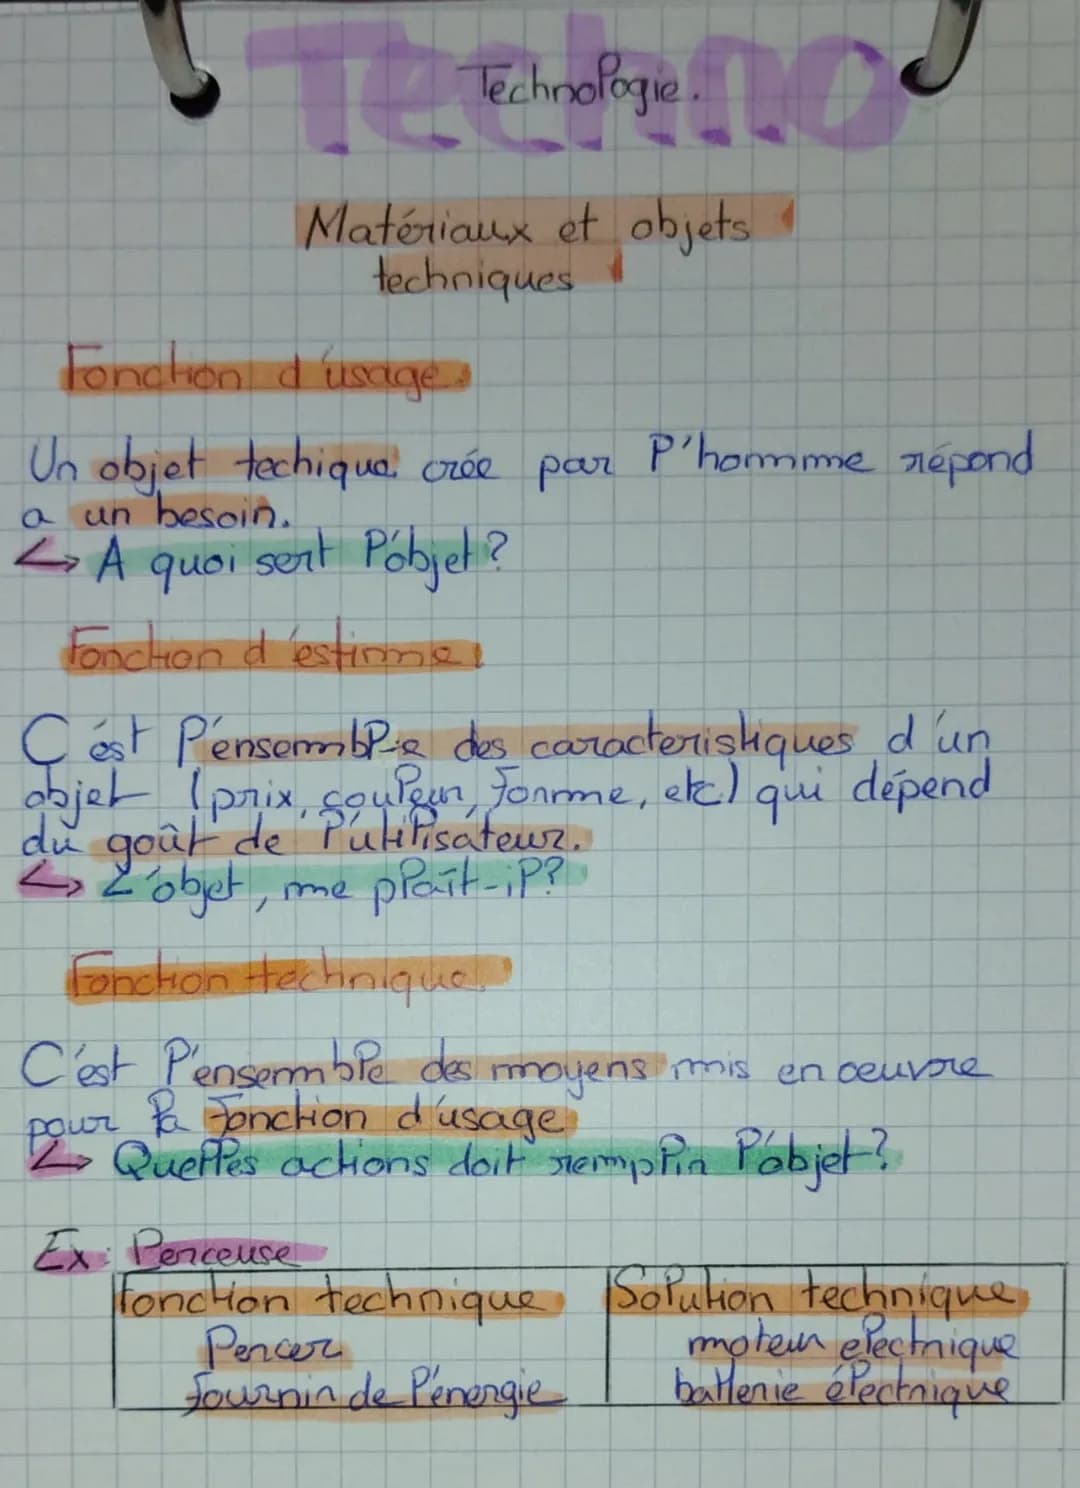 Techno
Technologie.
Matériaux et objets
techniques
Fonction d'usage.
Un objet techique crée par l'homme répond
a un besoin.
↳ A quoi sert l'objet?
Fonction d'estime
C'est l'ensemble des caracteristiques d'un
objet (prix, couleur, forme, etc) qui dépend
du goût de l'utilisateur.
↳ L'objet, me plaît-il?
Fonction technique.
C'est l'ensemble des moyens mis en oeuvre
pour la fonction d'usage
↳ Quelles actions doit remplir l'objet?
Ex: Perceuse
Fonction technique Solution technique
Percer moteur electrique
Fournir de l'énergie batterie électrique